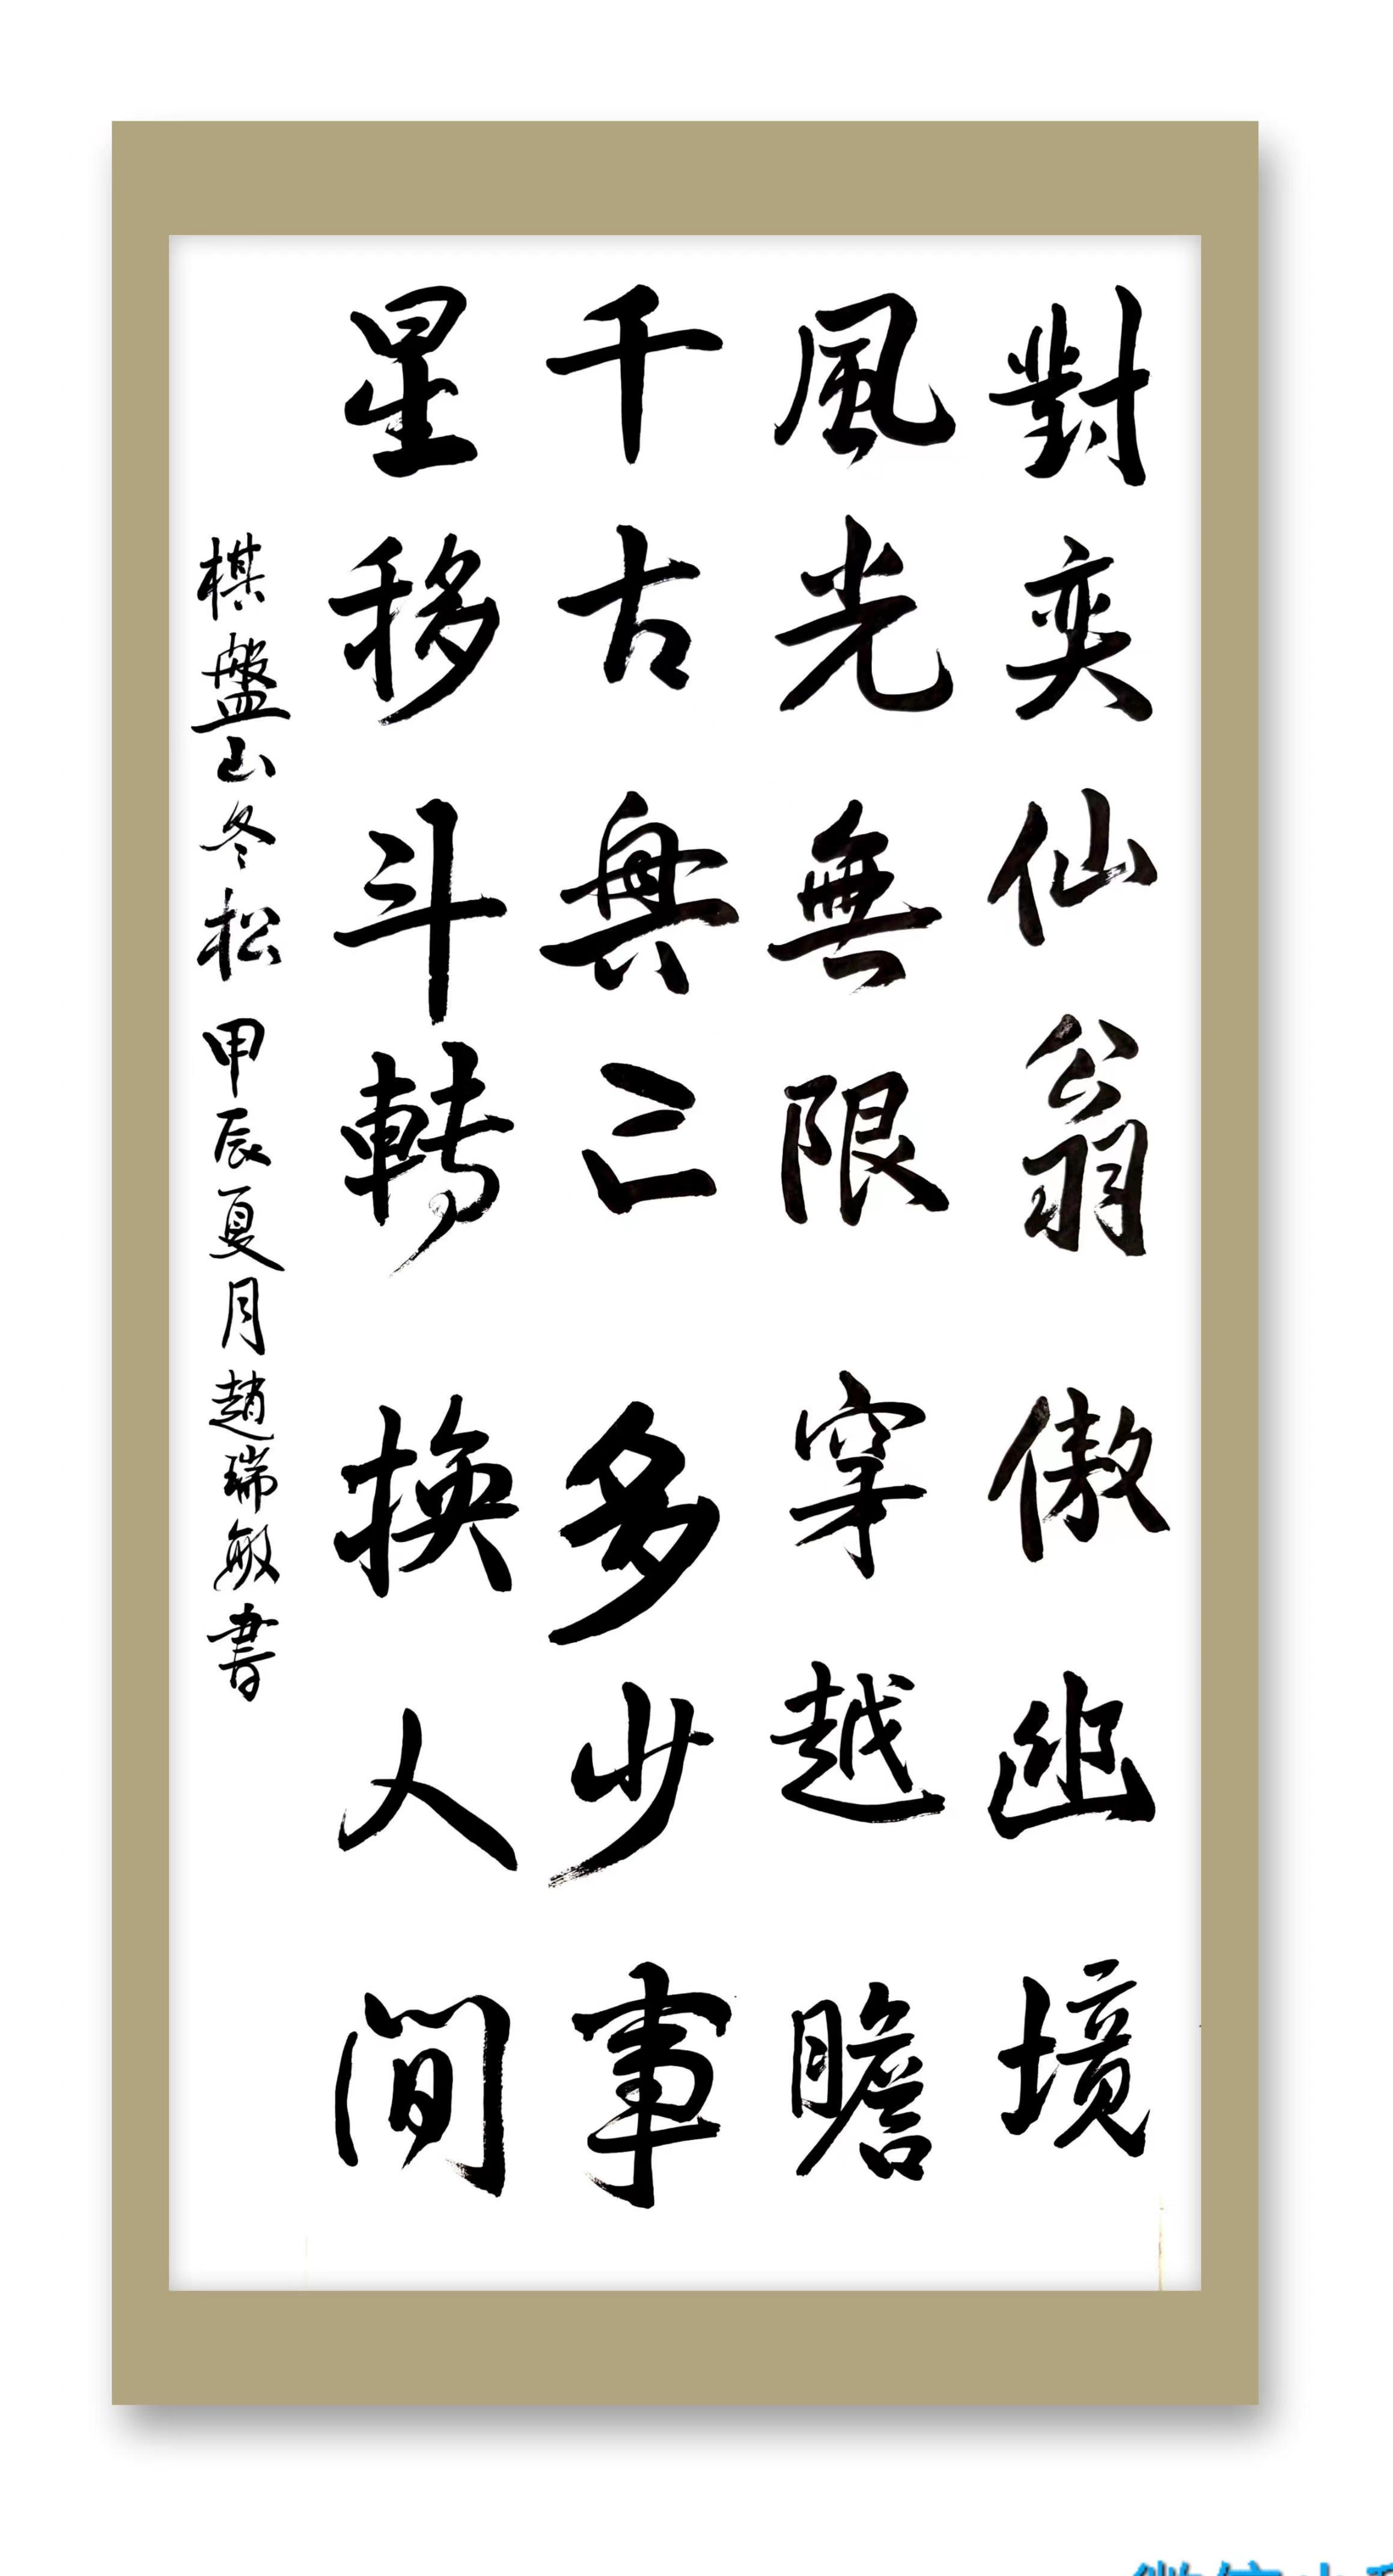 對奕仙翁傲幽境
風光無限穿越瞻
千古興亡多少事
星移斗轉換人間
棋盤山冬松 甲辰夏月趙瑞敏書